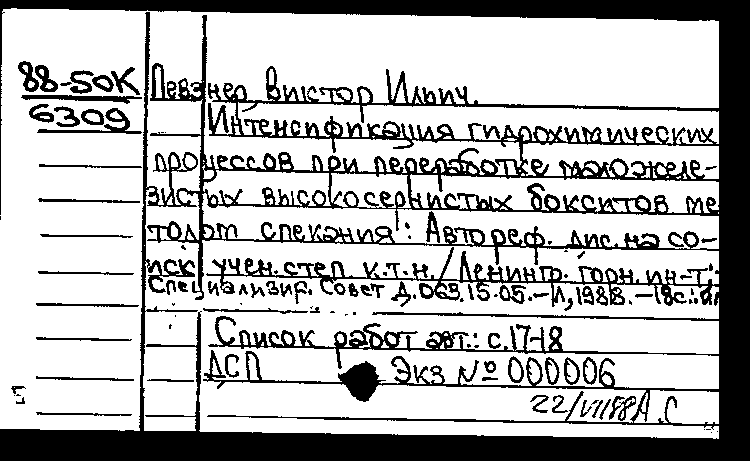 88-50К Певзнер, Виктор Ильич.
6309 Интенсификация гидрохимических
процессов при переработке маложеле-
зистых высокосернистых бокситов ме
тодом спекания : Автореф. дис. на со-
иск. учен. степ к.т.н. / Ленингр. горн. ин-т,
Специализир. Совет Д.063.15.05. - Л, 1988. - 18с.: ил
Список работ авт.: с.17-18
ДСП Экз № 000006
22/VII88 А.С